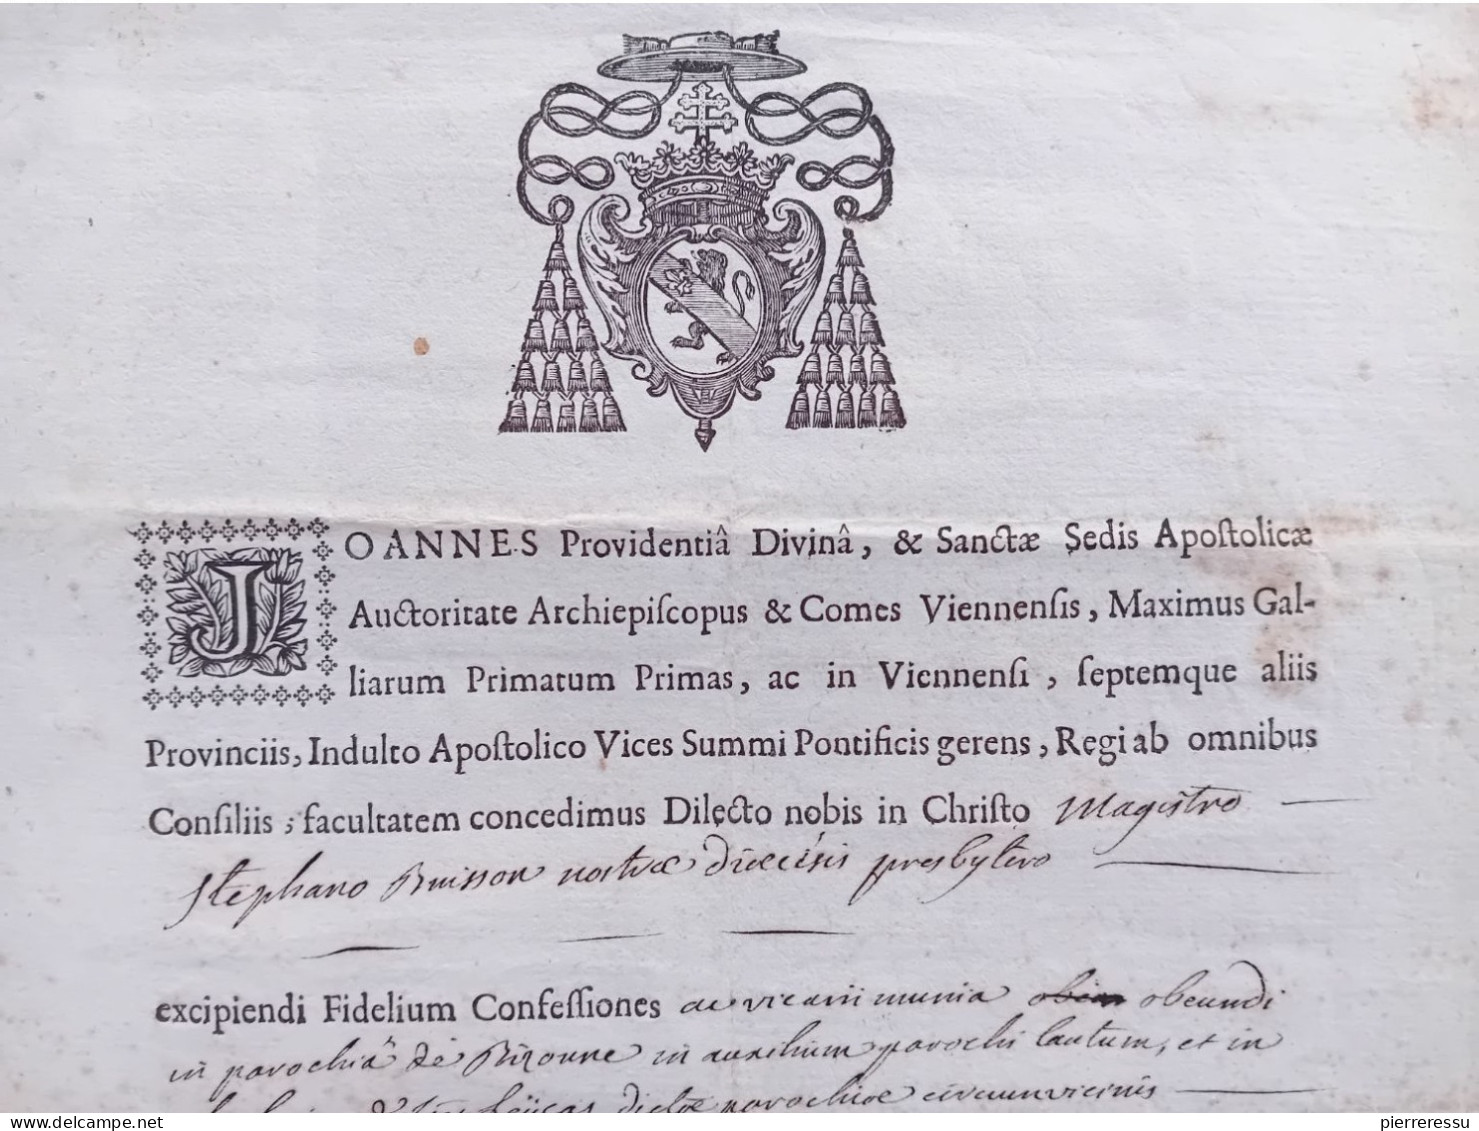 JOANNES Providentiâ Divinâ, & Sanctæ Sedis Apoſtolicæ
Auctoritate Archiepiſcopus & Comes Viennenſis, Maximus Gal-
liarum Primatum Primas, ac in Viennenſi, ſeptemque aliis
Provinciis, Indulto Apoſtolico Vices Summi Pontificis gerens, Regi ab omnibus
Conſiliis, facultatem concedimus Dilecto nobis in Chriſto Magistro
Stephano Buisson nostræ diœcesis presbytero
excipiendi Fidelium Confeſſiones ac vicarii munia obeundi
in parochiâ de Bizonne in auxilium parochi tantum, et in
dictæ parochiæ circumvicinis
pierreressu